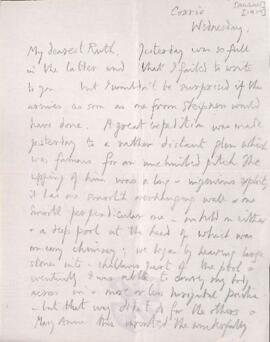 Corrie
Wednesday.
My dearest Ruth, Yesterday was so full
in the latter end that I failed to write
to you. But I wouldn't be surprised if the
as soon as one from would
have done. A great expedition was made
yesterday to a rather distant glen which
was famous for an unclimbed pitch. The
of him was a long & ingenious exploit
it has one smooth overhanging wall & one
smooth perpendicular one - no hold on either
& a deep pool at the head of which was
an easy chimney; we began by heaving large
stones into a shallower part of the pool &
eventually I was able to carry my body
across in a more or less horizontal position
- but that way didn't do for the others &
Mary Anne mounted the wonderfully